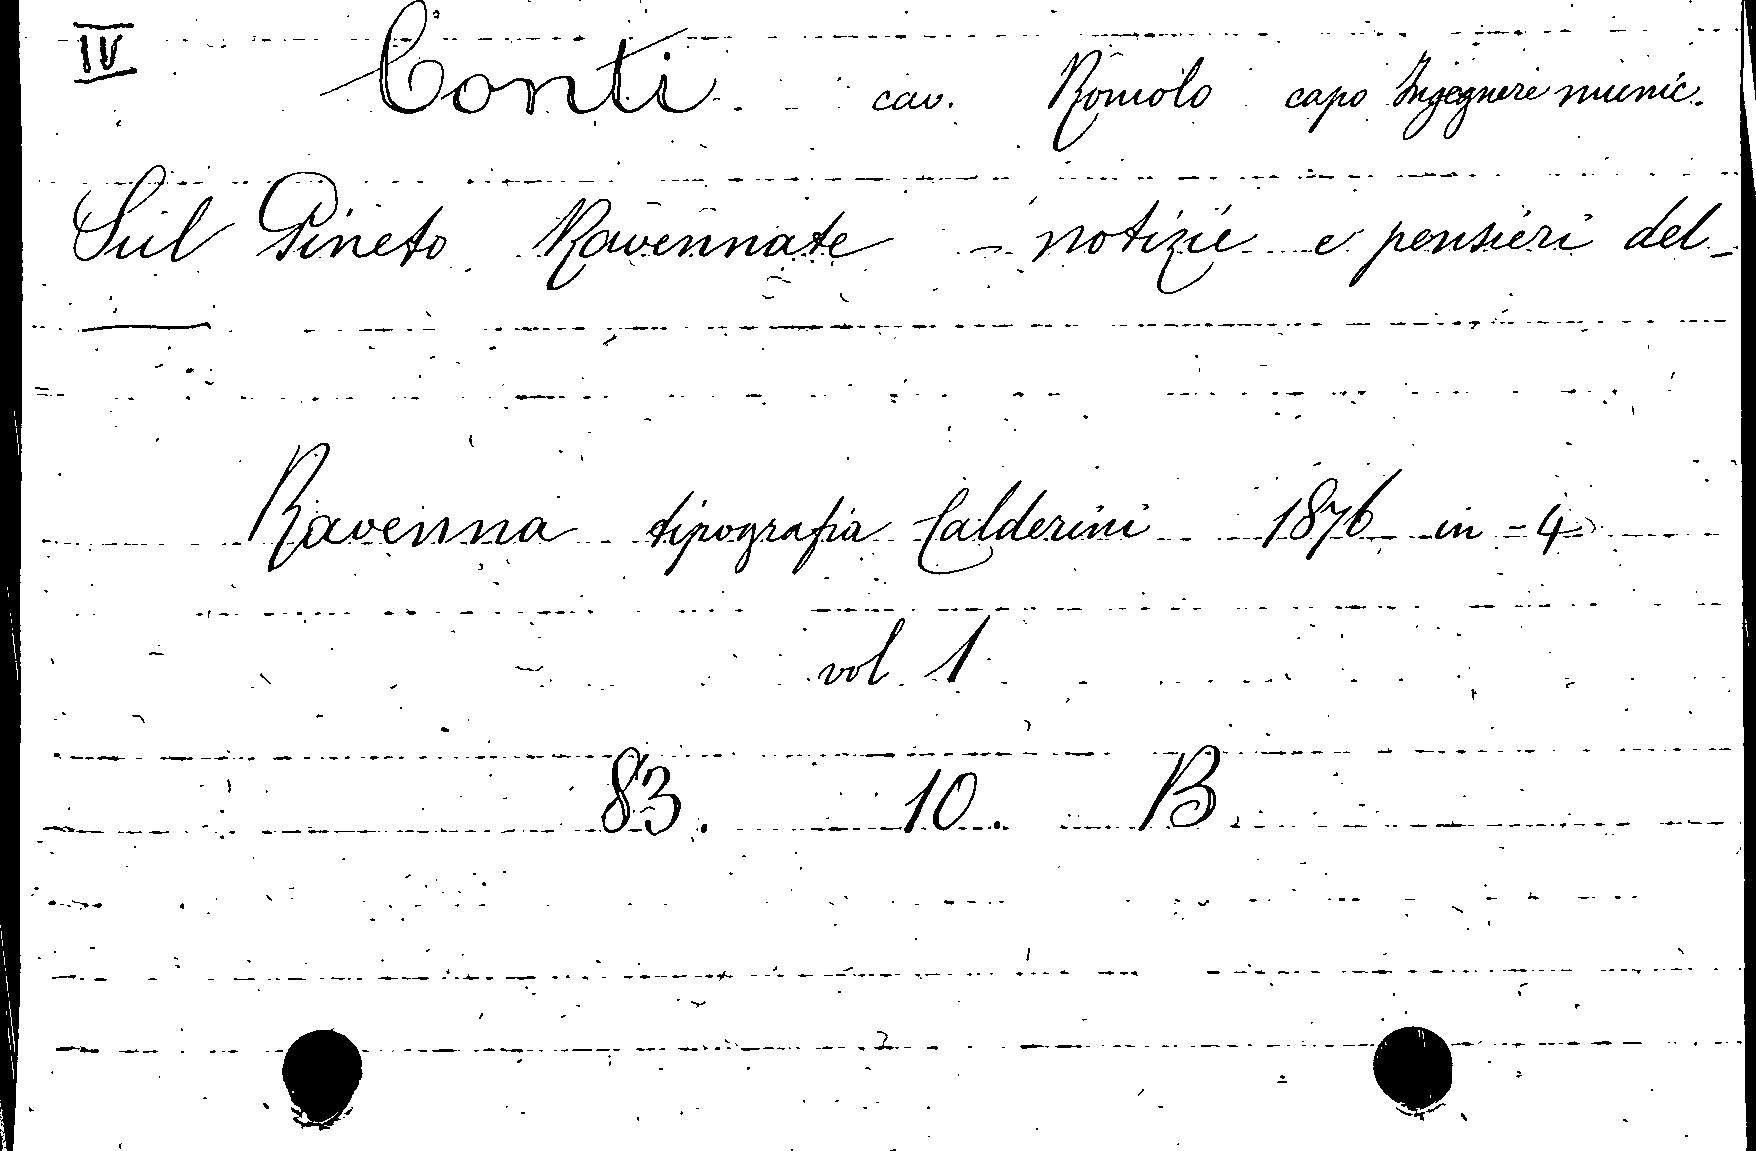 IV
Conti cav. Romolo capo Ingegnere munic.
Sul Pineto Ravennate - notizie e pensieri del -
Ravenna tipografia Calderini 1876 in - 4
vol 1
83. 10. B